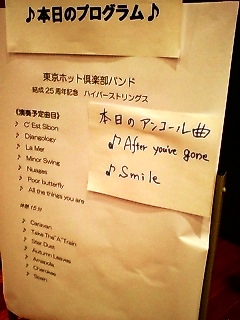 ♪本日のプログラム♪
東京ホット倶楽部バンド
結成25周年記念 ハイパーストリングス
《演奏予定曲目》
C'Est Sibon
Djangology
La Mer
Minor Swing
Nuages
Poor butterfly
All the things you are
休憩 15分
Caravan
Take The "A" Train
Star Dust
Autumn Leaves
Anapola
Cherokee
Spain
本日のアンコール曲
♪After you've gone
♪Smile